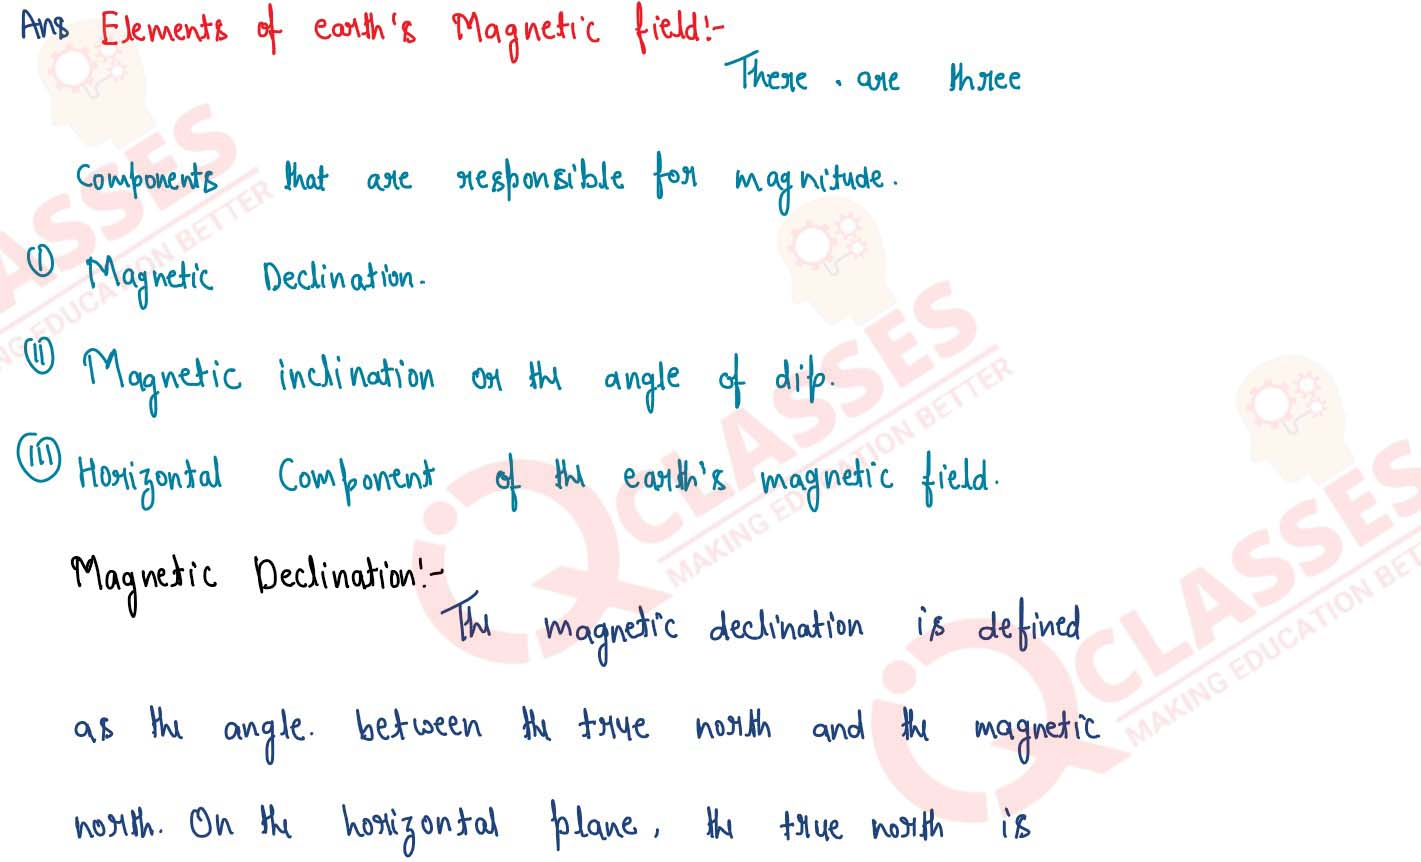 Ans Elements of earth's Magnetic field:-
There are three
Components that are responsible for magnitude.
(I) Magnetic Declination.
(II) Magnetic inclination or the angle of dip.
(III) Horizontal Component of the earth's magnetic field.
Magnetic Declination:-
The magnetic declination is defined
as the angle. between the true north and the magnetic
north. On the horizontal plane, the true north is
CLASSES
MAKING EDUCATION BETTER
IQ CLASSES
MAKING EDUCATION BETTER
IQ CLASSES
MAKING EDUCATION BET